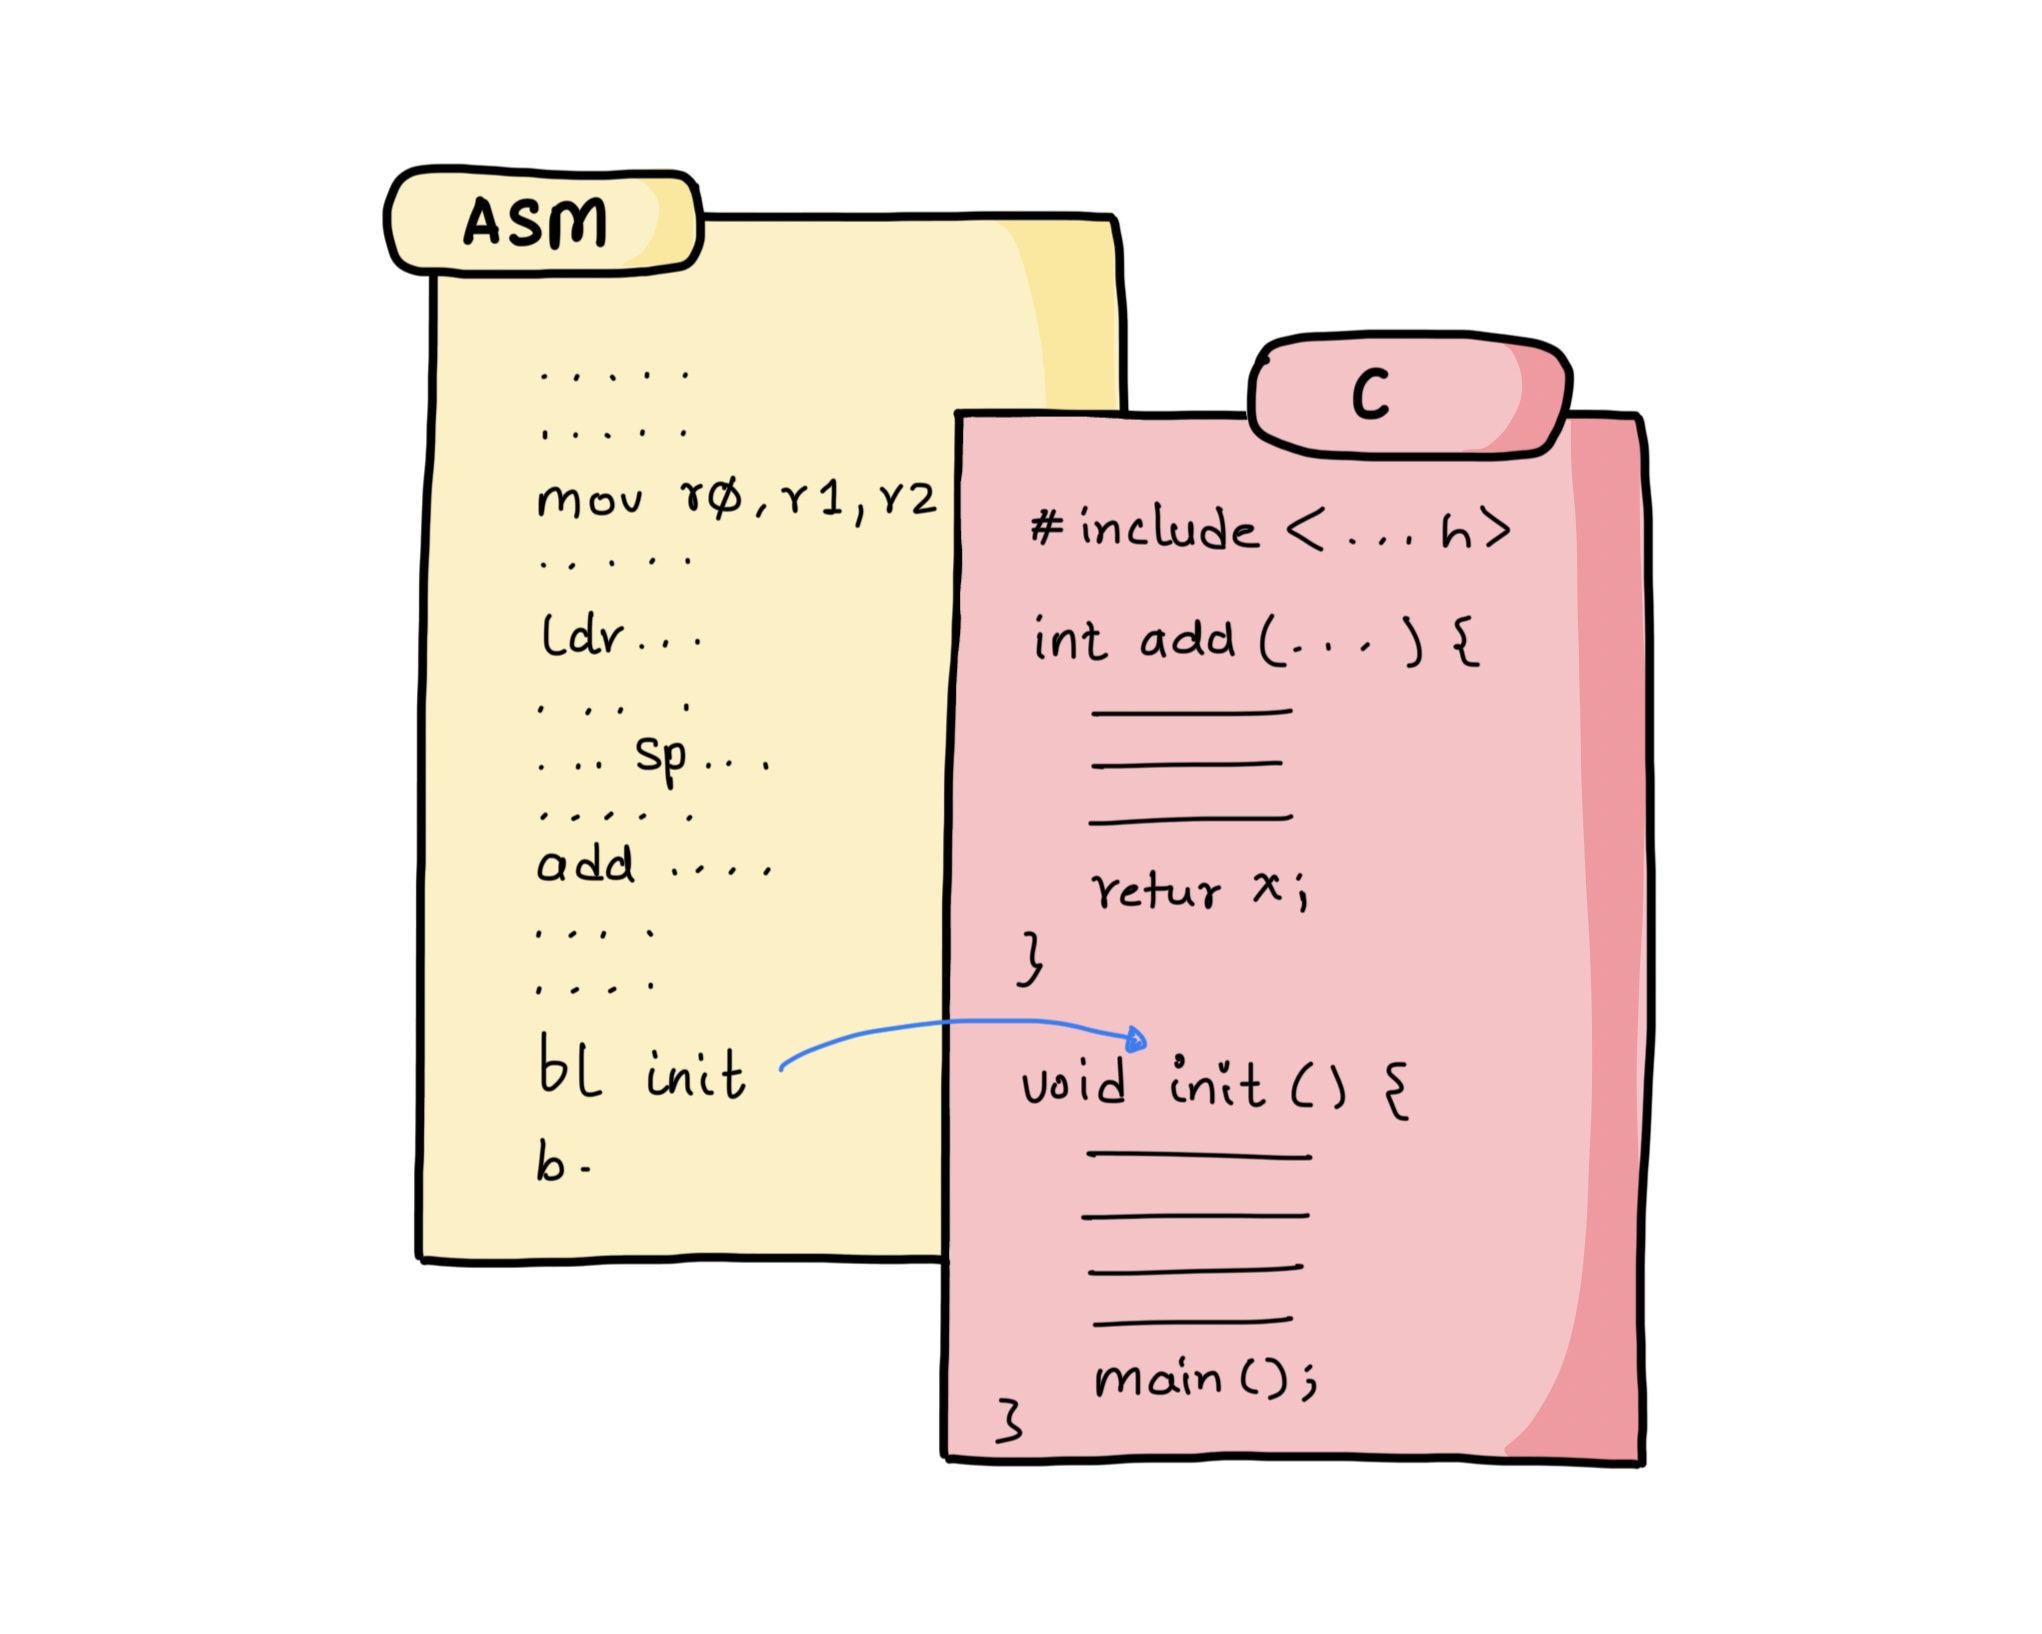 ASM
. . . . .
. . . . .
mov r0, r1, r2
. . . . .
ldr...
. . . .
... sp...
. . . . .
add ....
. . . .
. . . .
bl init
b-
C
#include <...h>
int add (...) {
retur x;
}
void init () {
main ();
}